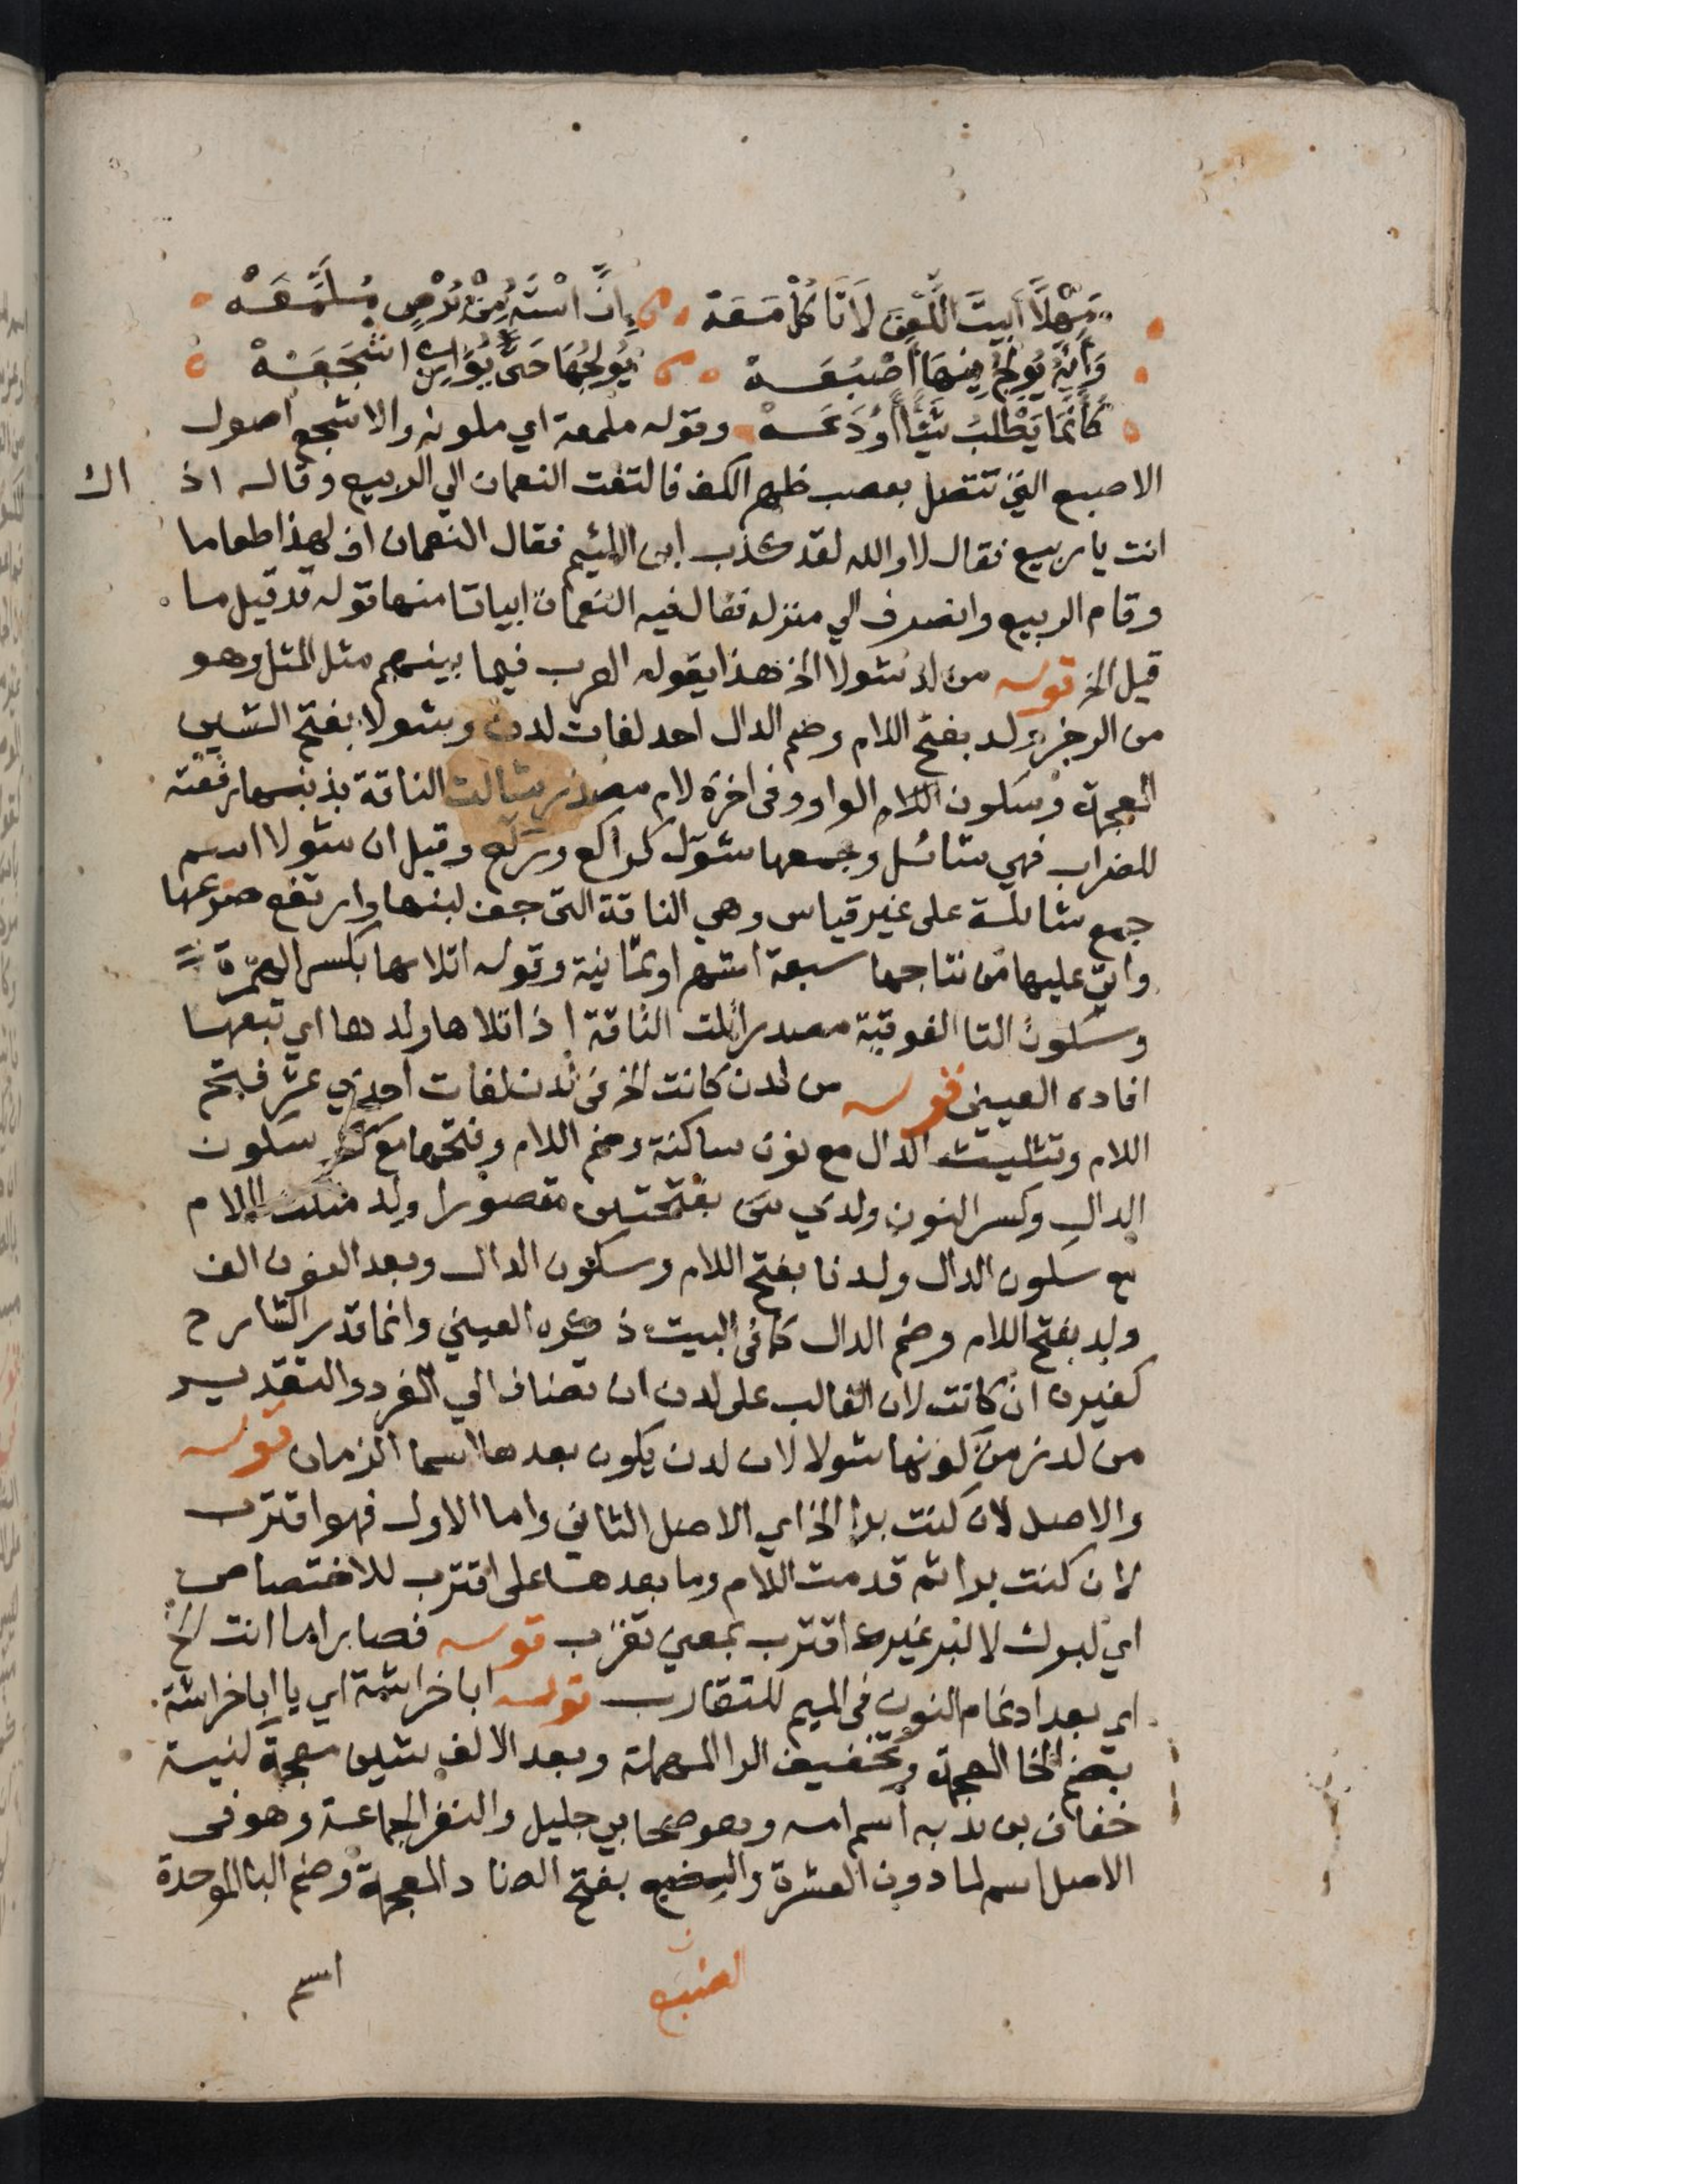 مَهْلًا أَبَيْتَ اللَّعْنَ لَا تَأْكُلْ مَعَهْ إِنَّ اسْتَهُ مِنْ بَرَصٍ مُلَمَّعَهْ
وَإِنَّهُ يُولِجُ فِيهَا أَصْبُعَهْ يُولِجُهَا حَتَّى يُوَارِي اشْجَعَهْ
كَأَنَّمَا يَطْلُبُ شَيْئًا أَوْدَعَهْ وقوله ملمعة اي ملونه والاشجع اصول
الاصبع التي تتصل بعصب ظهر الكف فالتفت النعمان الي الربيع وقال اذ اك
انت يا ربيع فقال لا والله لقد كذب ابن اللئيم فقال النعمان اف لهذا طعاما
وقام الربيع وانصرف الي منزله فقال فيه النعمان ابياتا منها قوله قد قيل ما
قيل الخ قوله من لد شولا الخ هذا يقوله العرب فيما بينهم مثل المثل وهو
من الرجز ولد بفتح اللام وضم الدال احد لغات لدن وشولا بفتح الشين
المعجمة وسكون اللام الواو وفى اخره لام مصدر شالت الناقة بذنبها رفعته
للضراب فهي شائل وجمعها شول كراكع وركع وقيل ان شولا اسم
جمع شائلة على غير قياس وهي الناقة التى جف لبنها وارتفع ضرعها
واتي عليها من نتاجها سبعة اشهر او ثمانية وقوله اتلائها بكسر الهمزة
وسكون التا الفوقية مصدر اتلت الناقة اذا تلاها ولدها اي تبعها
افاده العيني قوله من لدن كانت الخ فى لدن لغات احدي عشر فبفتح
اللام وتثليث الدال مع نون ساكنة وضم اللام وفتحها مع سكون
الدال وكسر النون ولدي بفتحتين مقصورا ولد مثلث اللام
مع سكون الدال ولدنا بفتح اللام وسكون الدال وبعد النون الف
ولد بفتح اللام وضم الدال كما فى البيت ذكره العيني وانما قدر الشارح
كغيره ان كانت لان الغالب على لدن ان تضاف الي المفرد والتقدير
من لدن زمن كونها شولا لان لدن يكون بعدها اسما الزمان قوله
والاصل لان كنت برا الخ اي الاصل الثاني واما الاول فهو اقترب
لان كنت برا ثم قدمت اللام وما بعدها على اقترب للاختصاص
اي لبرك لا لبر غيرك اقترب بمعني تقرب قوله فصار اما انت الخ
اي بعد ادغام النون فى الميم للتقارب قوله ابا خراشة اي يا ابا خراشة
بضم الخا المعجمة وتخفيف الرا المهملة وبعد الالف شين معجمة كنية
خفاف بن ندبه اسم امه وهو صحابي جليل والنفر الجماعة وهو فى
الاصل اسم لما دون العشرة والضبع بفتح الضاد المعجمة وضم البا الموحدة
الضبع اسم